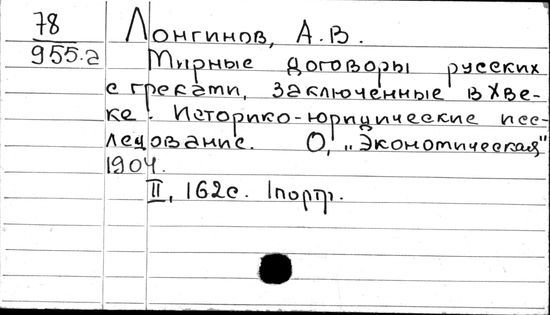 78
955.а
Лонгинов, А.В.
Мирные договоры русских
с греками, заключенные в X ве-
ке. Историко-юридические исс-
ледование. О, „Экономическая"
1904.
II, 162с. 1портр.